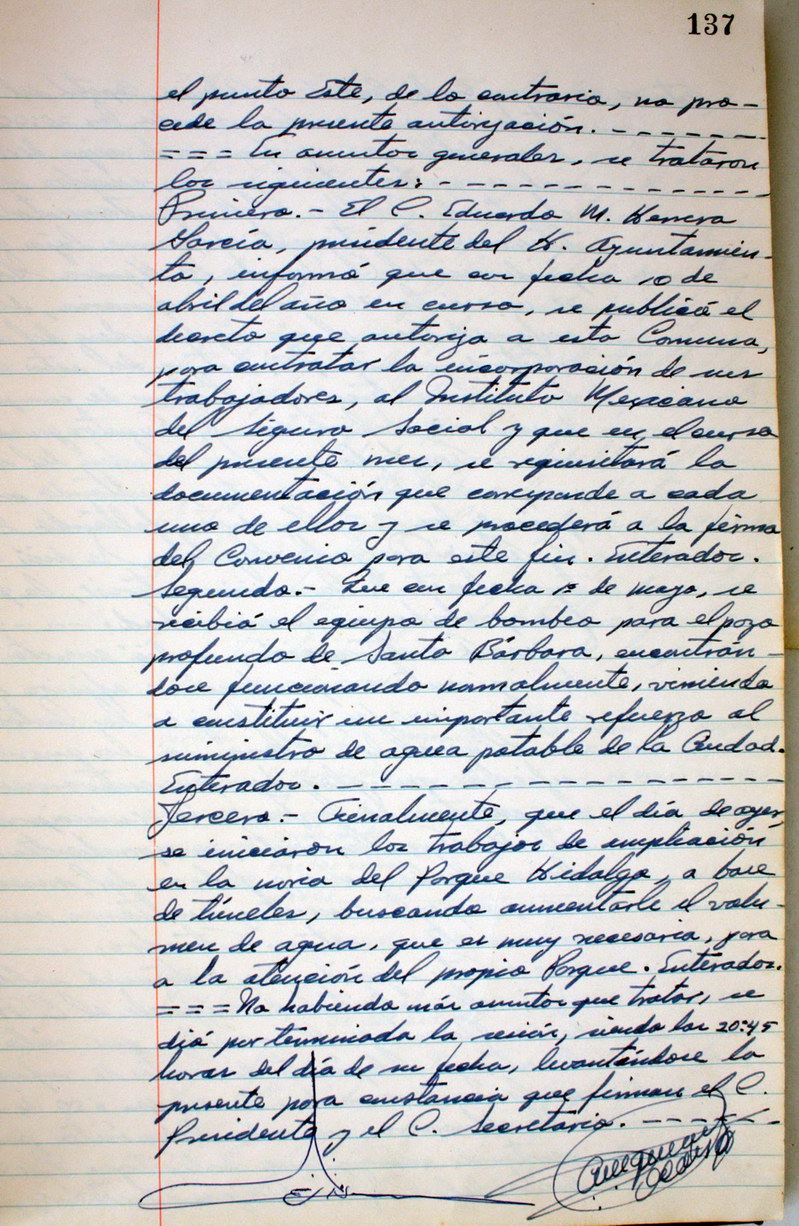 137
el punto Este, de lo contrario, no pro-
cede la presente autorización. - - - - - -
= = = En asuntos generales, se trataron
los siguientes: - - - - - - - - - - - - -
Primero.- El C. Eduardo M. Herrera
García, presidente del H. Ayuntamien-
to, informó que con fecha 10 de
abril del año en curso, se publicó el
decreto que autoriza a esta Comuna,
para contratar la incorporación de sus
trabajadores, al Instituto Mexicano
del Seguro Social y que en el curso
del presente mes, se requisitará la
documentación que corresponde a cada
uno de ellos y se procederá a la firma
del Convenio para este fin. Enterados.
Segundo.- Que con fecha 1º de mayo, se
recibió el equipo de bombeo para el pozo
profundo de Santa Bárbara, encontrán-
dose funcionando normalmente, viniendo
a constituir un importante refuerzo al
suministro de agua potable de la Ciudad.
Enterados. - - - - - - - - - - - - - - -
Tercero.- Finalmente, que el día de ayer,
se iniciaron los trabajos de ampliación
en la noria del Parque Hidalgo, a base
de túneles, buscando aumentarle el volu-
men de agua, que es muy necesaria, para
a la atención del propio Parque. Enterados.
= = = No habiendo más asuntos que tratar, se
dió por terminada la sesión, siendo las 20:45
horas del día de su fecha, levantándose la
presente para constancia que firman el C.
Presidente y el C. Secretario. - - - - - -